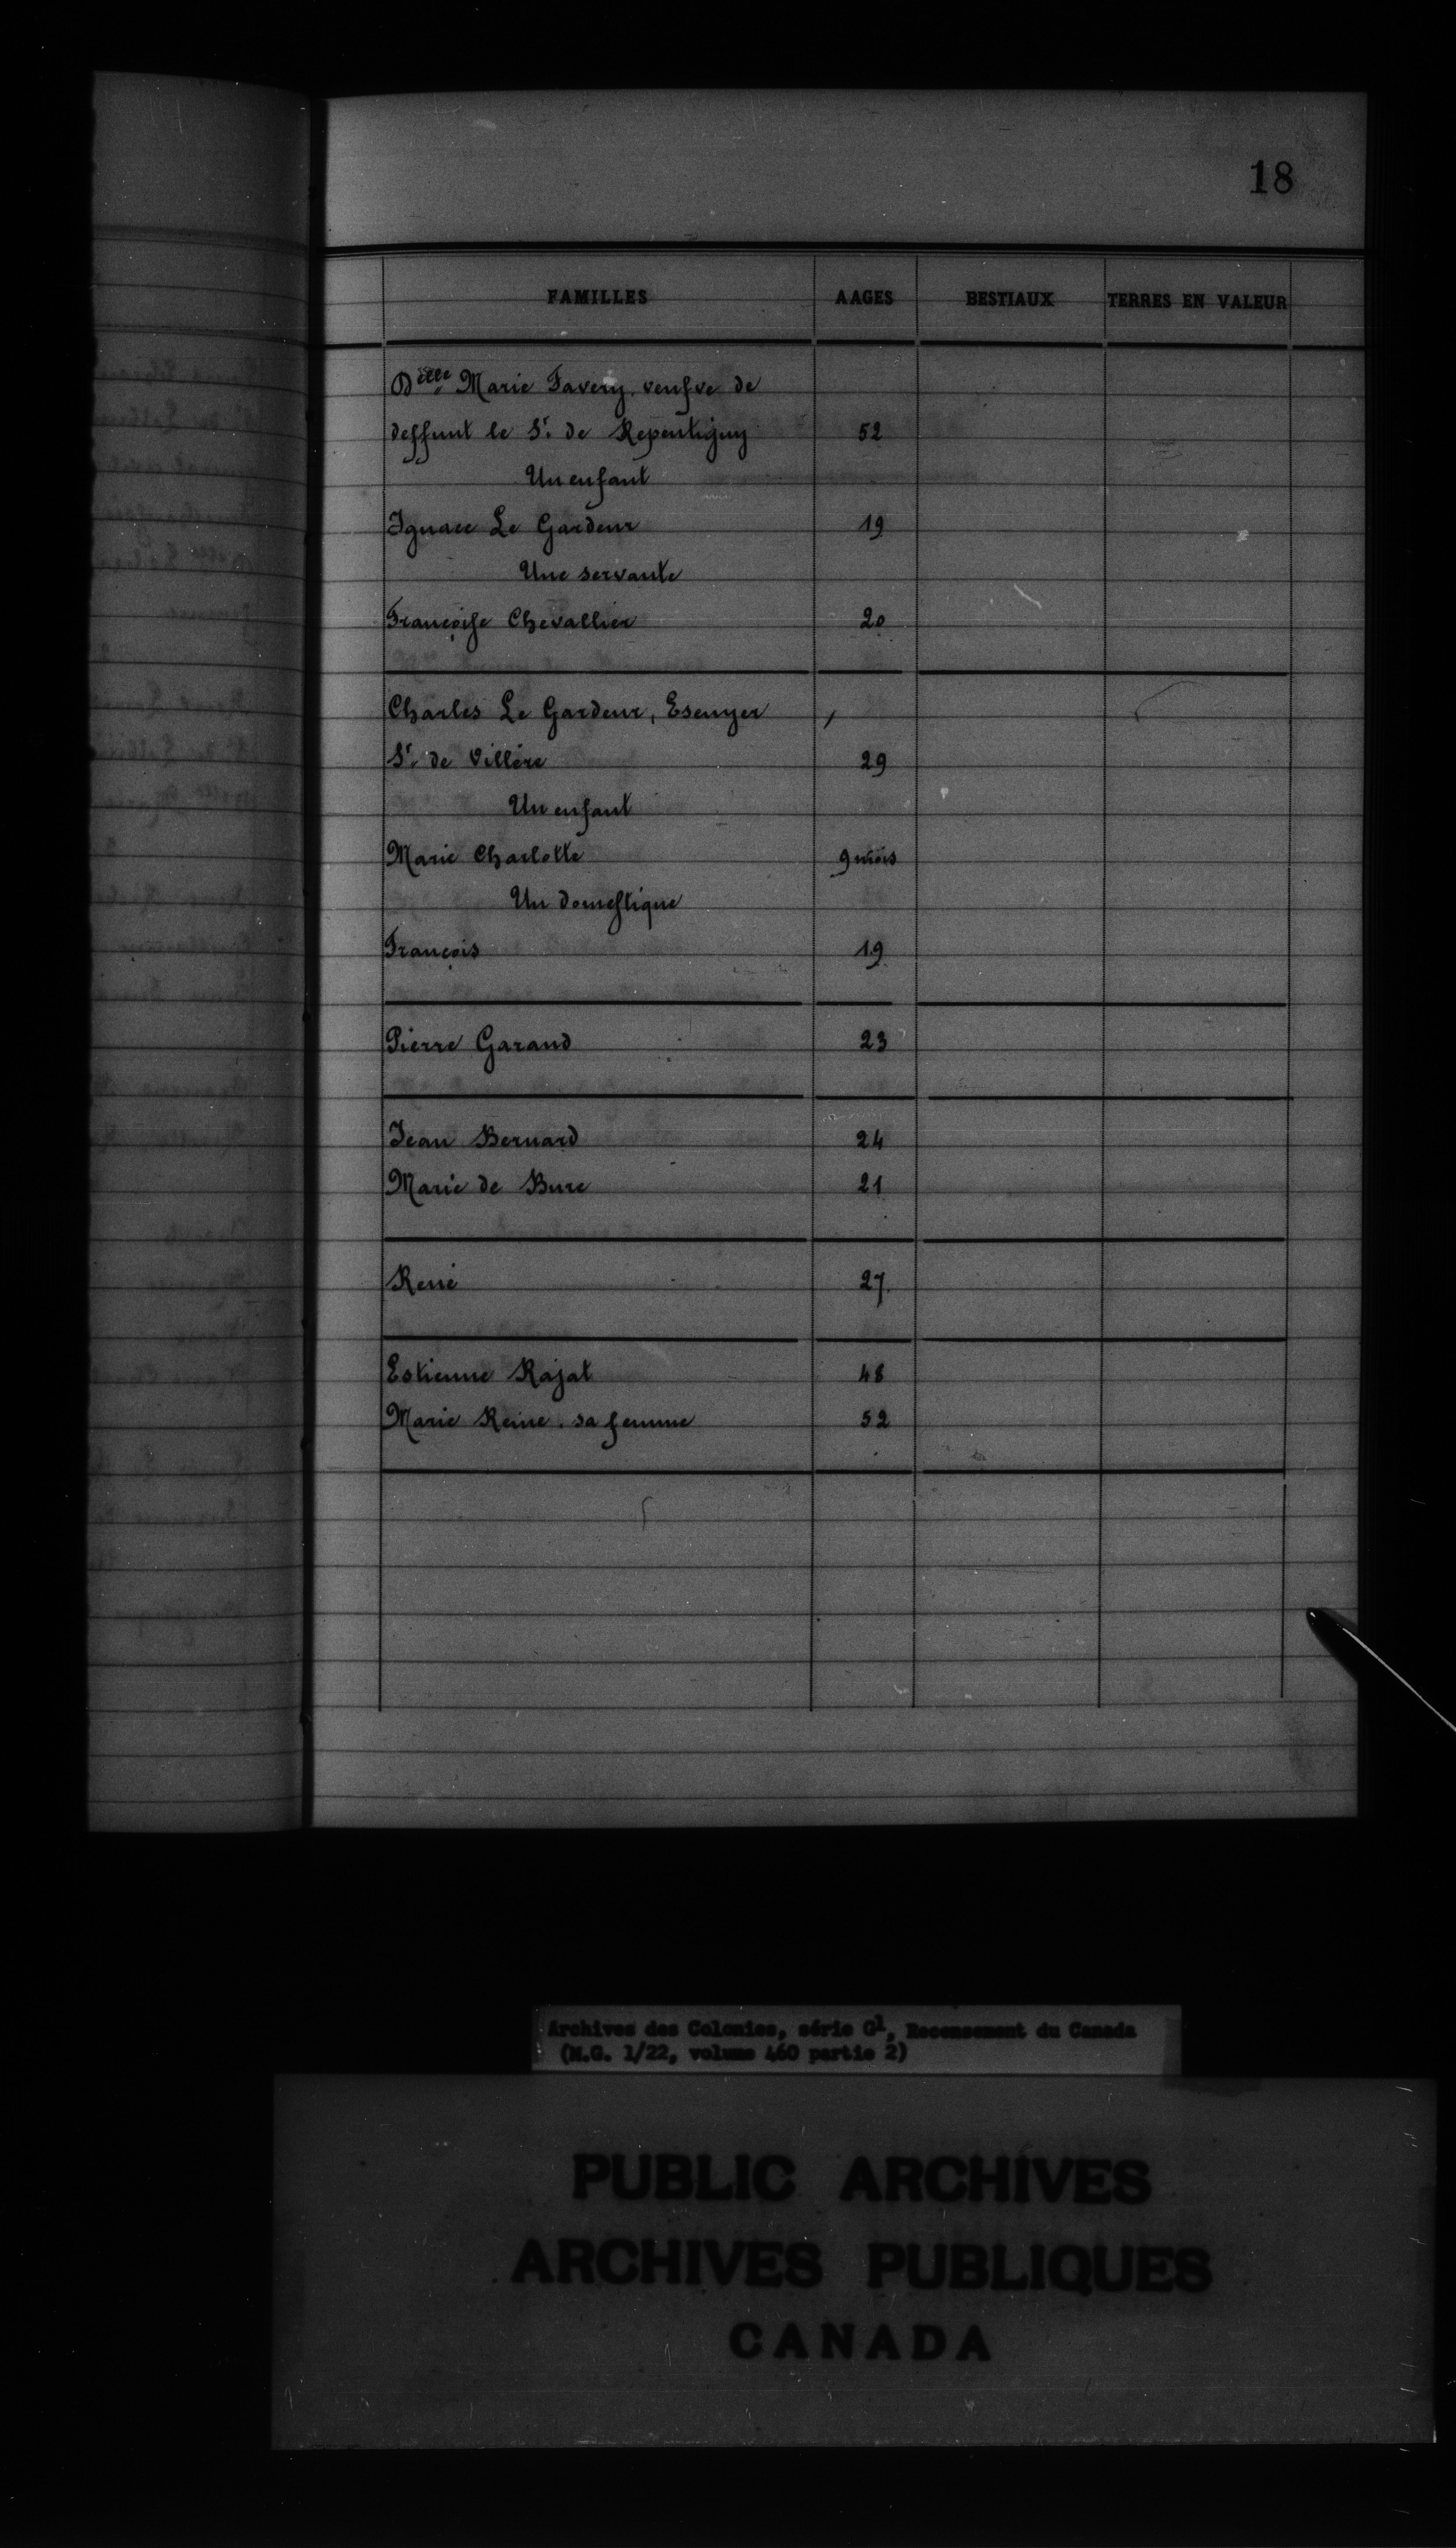 18
FAMILLES AAGES BESTIAUX TERRES EN VALEUR
Delle Marie Favery, veufve de
deffunt le Sr. de Repentigny 52
Un enfant
Ignace Le Gardeur 19
Une servante
Françoise Chevallier 20
Charles Le Gardeur, Escuyer
Sr. de Villère 29
Un enfant
Marie Charlotte 9 mois
Un domestique
François 19
Pierre Garand 23
Jean Bernard 24
Marie de Bure 21
René 27
Estienne Rajat 48
Marie Reine, sa femme 52
Archives des Colonies, série G1, Recensement du Canada
(M.G. 1/22, volume 460 partie 2)
PUBLIC ARCHIVES
ARCHIVES PUBLIQUES
CANADA